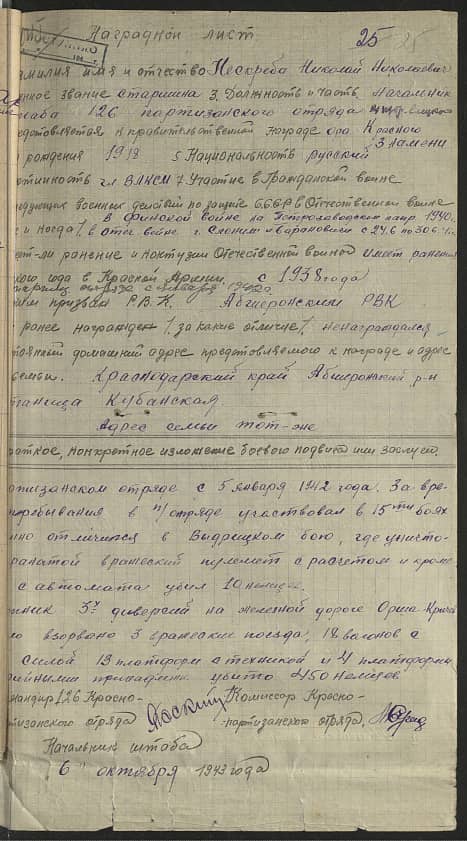 Наградной лист
25 25
милия имя и отчество Нескреба Николай Николаевич
нное звание старшина 3. Должность и часть Начальник
таба 126 партизанского отряда
едставляется к правительственной награде орд. Красного
Знамени
рождения 1918 5 Национальность русский
ртийность чл ВЛКСМ 7. Участие в Гражданской войне
ледующих военных действий по защите СССР в Отечественной войне
в финской войне на Петрозаводском напр. 1940г.
е и когда/, в отеч. войне г. Слоним и Барановичи с 24.6 по 30.6
ет-ли ранение и контузии Отечественной войной имеет ранения
кого года в Красной Армии с 1938 года
партиз отряде с января 1942
ким призван Р.В.К. Абшеронским РВК
ранее награжден /за какие отличие/ ненаграждался
тоянный домашний адрес представляемого к награде и адрес
семьи. Краснодарский край Абшеронский р-н
таница Кубанская
Адрес семьи тот-же
раткое, конкретное изложение боевого подвига или заслуг.
ртизанском отряде с 5 января 1942 года. За вре-
пребывания в п/отряде участвовал в 15ти боях
нно отличился в Выдрицком бою, где уничто-
ранатой вражеский пулемет с расчетом и кроме
с автомата убил 10 немцев.
тник 3х диверсий на железной дороге Орша Кричев
ло взорвано 3 вражеских поезда, 18 вагонов с
силой 13 платформ с техникой и 4 платформы
убито 450 немцев.
мандир 126 Красно- Комиссар Красно-
тизанского отряда -партизанского отряда
Начальник штаба
6" октября 1943 года